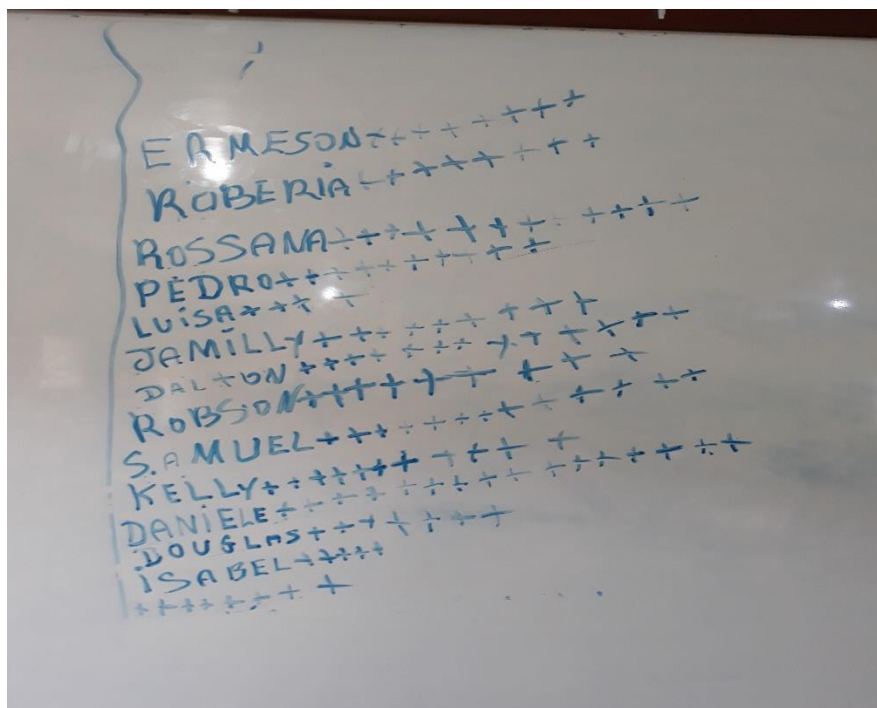 ERMESON+++++++++
ROBERIA+++++++++
ROSSANA++++++++++++++
PEDRO+++++++++++
LUÍSA+++++
JAMILLY++++++++++
DALTON+++++++++++++
ROBSON++++++++++
SAMUEL++++++++++++++
KELLY++++++++++++
DANIELE++++++++++++++++++
DOUGLAS++++++++
ISABEL+++++
+++++++++